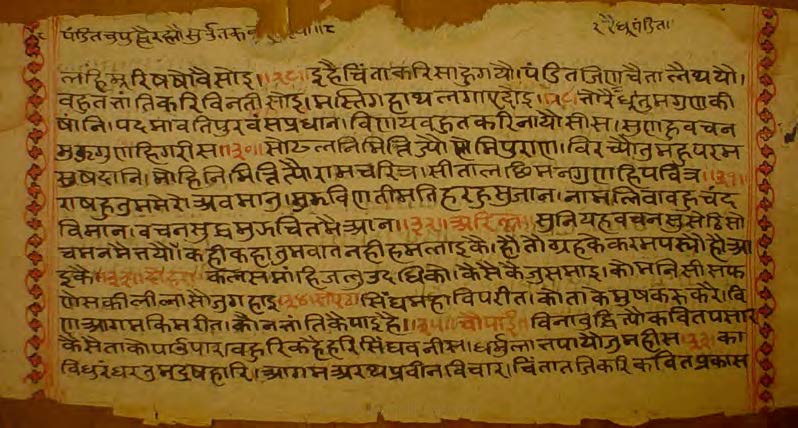 पंडितचपुह्वैरह्यौ ररैधूपंडिता।
इहैचिंताकरिसाहुगयौ।पंडितजिणचैतालैथयौ।
वहुतभांतिकरिविनतीसोइ।मस्तिगहाथलगाएदोइ।।२९।तौरैधूतुमगुणकी
षांनि।पदमावतिपुरवंसप्रधान।विणयवहुतकरिनायोसीस।सुणहुवचन
मुझगुणहिगरीस।।३०।।सोढलनिमित्ति नेमिपुराण।विरच्यौतुमहपरम
सुषदानि।मोहिनिमित्तित्यौरामचरित्र।सीतालछिमनगुणहिपवित्र।।३१।।
राषहुतुममेरोअवमानु।मुझविणतीमतिहरहुसुजान।नामलिवावहुचंद
विमान।वचनसुद्धमुझचितमैआन।।३२।।अरिल्ल।।सुनियहवचनसुसेठिसो
चमनमैतयौ।कहीकहातुमवातनहीहमलाइके।होतोग्रहकेकरमपस्यौहोआ
इके।।३३।।दोहरा।।कलसमांहिजलउदधिको।कैसैकैजुसमाइ।कोमनिसीसफ
णीसकीलीलासौजुगहाइ।।३४।।सोरठा।।सिंघमहाविपरीत।कौताकेमुषकरुकरै।वि
णआगमकिमरीत।कौनभांतिकैपाइहै।।३५।।चौपाई।।विनावुद्धित्यौकवितपसार
कैसैताकोपावुपार।वहुरिकहेहरिसिंघवनीस।धर्मलाभपायोजुमहीस।।३६।।का
विधुरंधरतुमदुषहारि।आगमअरथप्रवीनविचार।चिंतातजिकरिकवितप्रकास